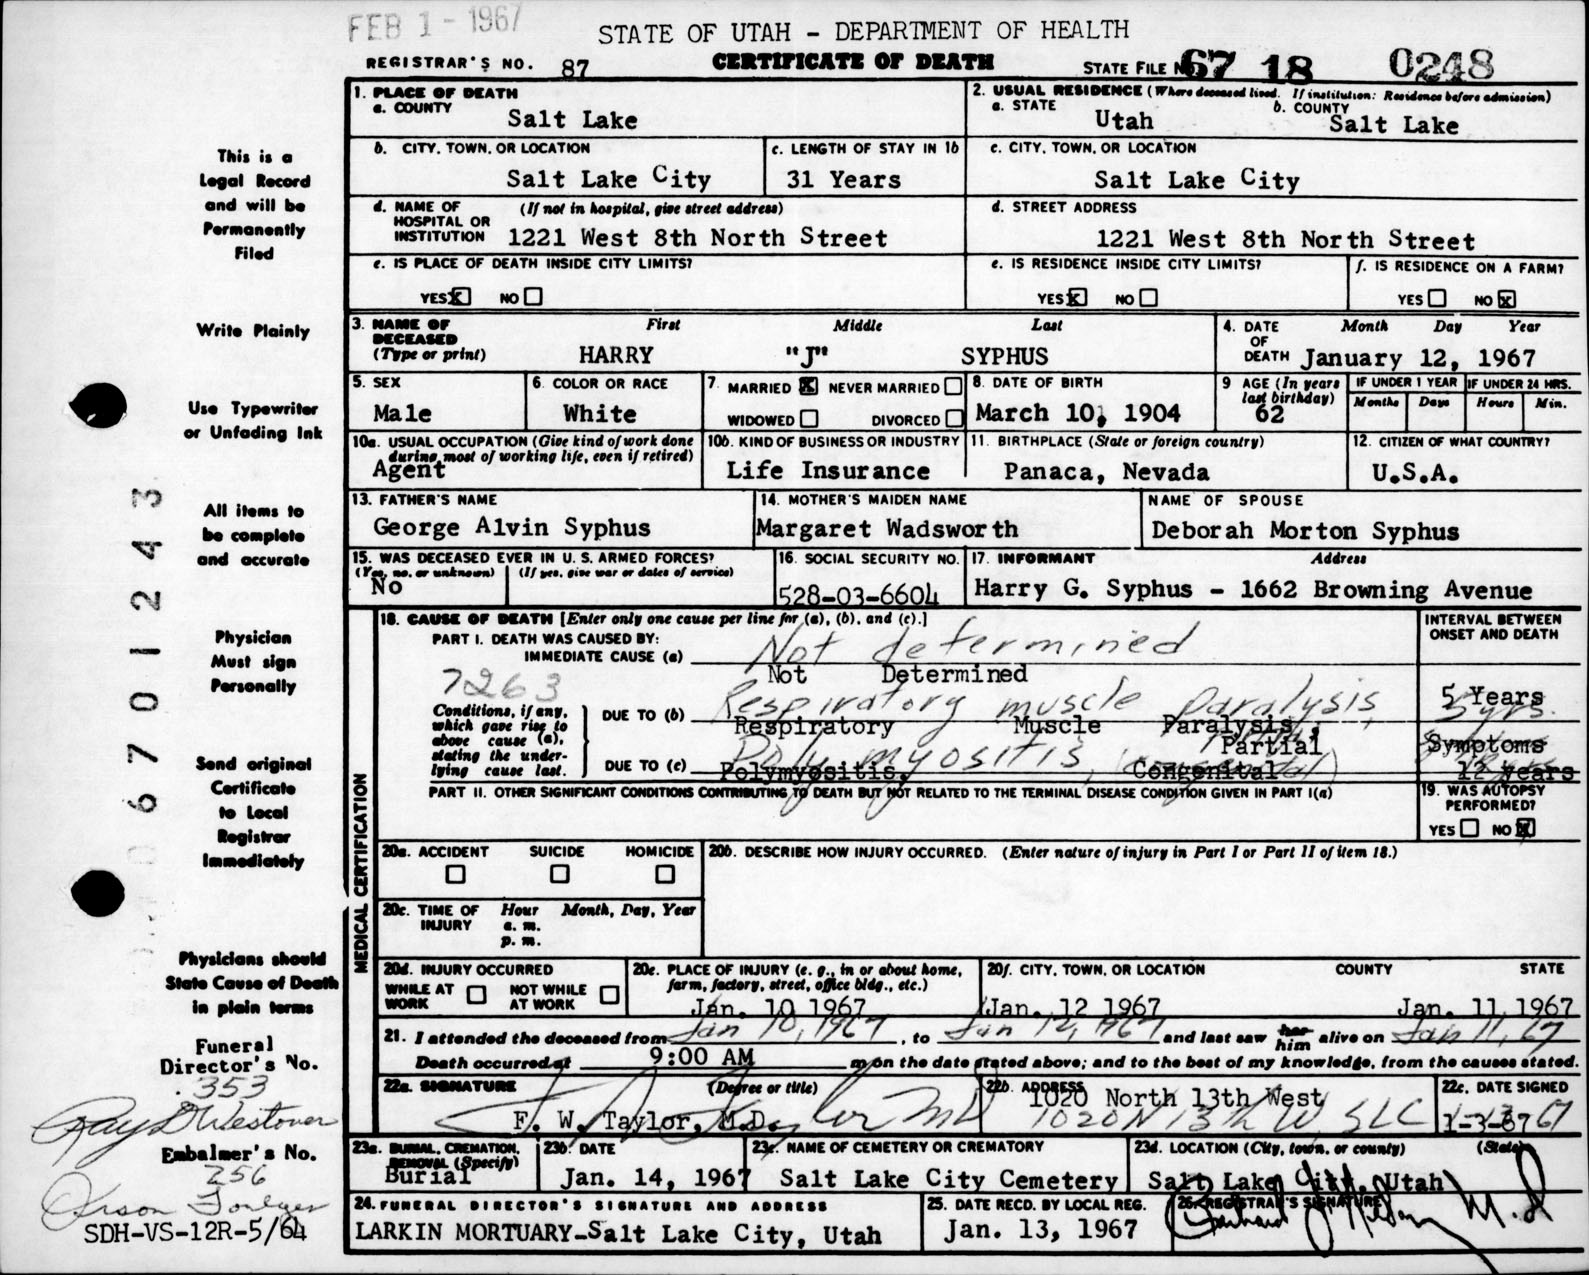 FEB 1 - 1967
STATE OF UTAH - DEPARTMENT OF HEALTH
REGISTRAR'S NO. 87
CERTIFICATE OF DEATH
STATE FILE NO. 67 18 0248
This is a
Legal Record
and will be
Permanently
Filed
Write Plainly
Use Typewriter
or Unfading Ink
All items to
be complete
and accurate
Physician
Must sign
Personally
Send original
Certificate
to Local
Registrar
Immediately
Physicians should
State Cause of Death
in plain terms
Funeral
Director's No.
353
Ray D Westover
Embalmer's No.
256
SDH-VS-12R-5/64
6701243
1. PLACE OF DEATH
a. COUNTY
Salt Lake
2. USUAL RESIDENCE (Where deceased lived. If institution: Residence before admission)
a. STATE b. COUNTY
Utah Salt Lake
b. CITY, TOWN, OR LOCATION
Salt Lake City
c. LENGTH OF STAY IN 1b
31 Years
c. CITY, TOWN, OR LOCATION
Salt Lake City
d. NAME OF (If not in hospital, give street address)
HOSPITAL OR
INSTITUTION 1221 West 8th North Street
d. STREET ADDRESS
1221 West 8th North Street
e. IS PLACE OF DEATH INSIDE CITY LIMITS?
YES X NO
e. IS RESIDENCE INSIDE CITY LIMITS?
YES X NO
f. IS RESIDENCE ON A FARM?
YES NO X
3. NAME OF First Middle Last
DECEASED
(Type or print) HARRY "J" SYPHUS
4. DATE Month Day Year
OF
DEATH January 12, 1967
5. SEX
Male
6. COLOR OR RACE
White
7. MARRIED X NEVER MARRIED
WIDOWED DIVORCED
8. DATE OF BIRTH
March 10, 1904
9 AGE (In years
last birthday)
62
IF UNDER 1 YEAR
Months Days
IF UNDER 24 HRS.
Hours Min.
10a. USUAL OCCUPATION (Give kind of work done
during most of working life, even if retired)
Agent
10b. KIND OF BUSINESS OR INDUSTRY
Life Insurance
11. BIRTHPLACE (State or foreign country)
Panaca, Nevada
12. CITIZEN OF WHAT COUNTRY?
U.S.A.
13. FATHER'S NAME
George Alvin Syphus
14. MOTHER'S MAIDEN NAME
Margaret Wadsworth
NAME OF SPOUSE
Deborah Morton Syphus
15. WAS DECEASED EVER IN U. S. ARMED FORCES?
(Yes, no, or unknown) (If yes, give war or dates of service)
No
16. SOCIAL SECURITY NO.
528-03-6604
17. INFORMANT Address
Harry G. Syphus - 1662 Browning Avenue
MEDICAL CERTIFICATION
18. CAUSE OF DEATH [Enter only one cause per line for (a), (b), and (c).]
PART I. DEATH WAS CAUSED BY:
IMMEDIATE CAUSE (a) Not determined
Not Determined
7263
Conditions, if any,
which gave rise to
above cause (a),
stating the under-
lying cause last.
DUE TO (b) Respiratory muscle paralysis,
Respiratory Muscle Paralysis,
Partial
DUE TO (c) Polymyositis, (congenital)
Polymyositis, Congenital
INTERVAL BETWEEN
ONSET AND DEATH
5 Years
5 yrs.
Symptoms
12 years
PART II. OTHER SIGNIFICANT CONDITIONS CONTRIBUTING TO DEATH BUT NOT RELATED TO THE TERMINAL DISEASE CONDITION GIVEN IN PART I(a)
19. WAS AUTOPSY
PERFORMED?
YES NO X
20a. ACCIDENT SUICIDE HOMICIDE
20b. DESCRIBE HOW INJURY OCCURRED. (Enter nature of injury in Part I or Part II of item 18.)
20c. TIME OF Hour Month, Day, Year
INJURY a. m.
p. m.
20d. INJURY OCCURRED
WHILE AT NOT WHILE
WORK AT WORK
20e. PLACE OF INJURY (e. g., in or about home,
farm, factory, street, office bldg., etc.)
20f. CITY, TOWN, OR LOCATION COUNTY STATE
Jan. 10 1967 Jan. 12 1967 Jan. 11, 1967
21. I attended the deceased from Jan 10, 1967, to Jan 12, 1967 and last saw her him alive on Jan 11, 67
Death occurred at 9:00 AM m on the date stated above; and to the best of my knowledge, from the causes stated.
22a. SIGNATURE (Degree or title)
F. W. Taylor, M.D.
22b. ADDRESS
1020 North 13th West
1020 N 13th W. SLC
22c. DATE SIGNED
1-3-67
23a. BURIAL, CREMATION,
REMOVAL (Specify)
Burial
23b. DATE
Jan. 14, 1967
23c. NAME OF CEMETERY OR CREMATORY
Salt Lake City Cemetery
23d. LOCATION (City, town, or county) (State)
Salt Lake City, Utah
24. FUNERAL DIRECTOR'S SIGNATURE AND ADDRESS
LARKIN MORTUARY-Salt Lake City, Utah
25. DATE RECD. BY LOCAL REG.
Jan. 13, 1967
26. REGISTRAR'S SIGNATURE
M.D.